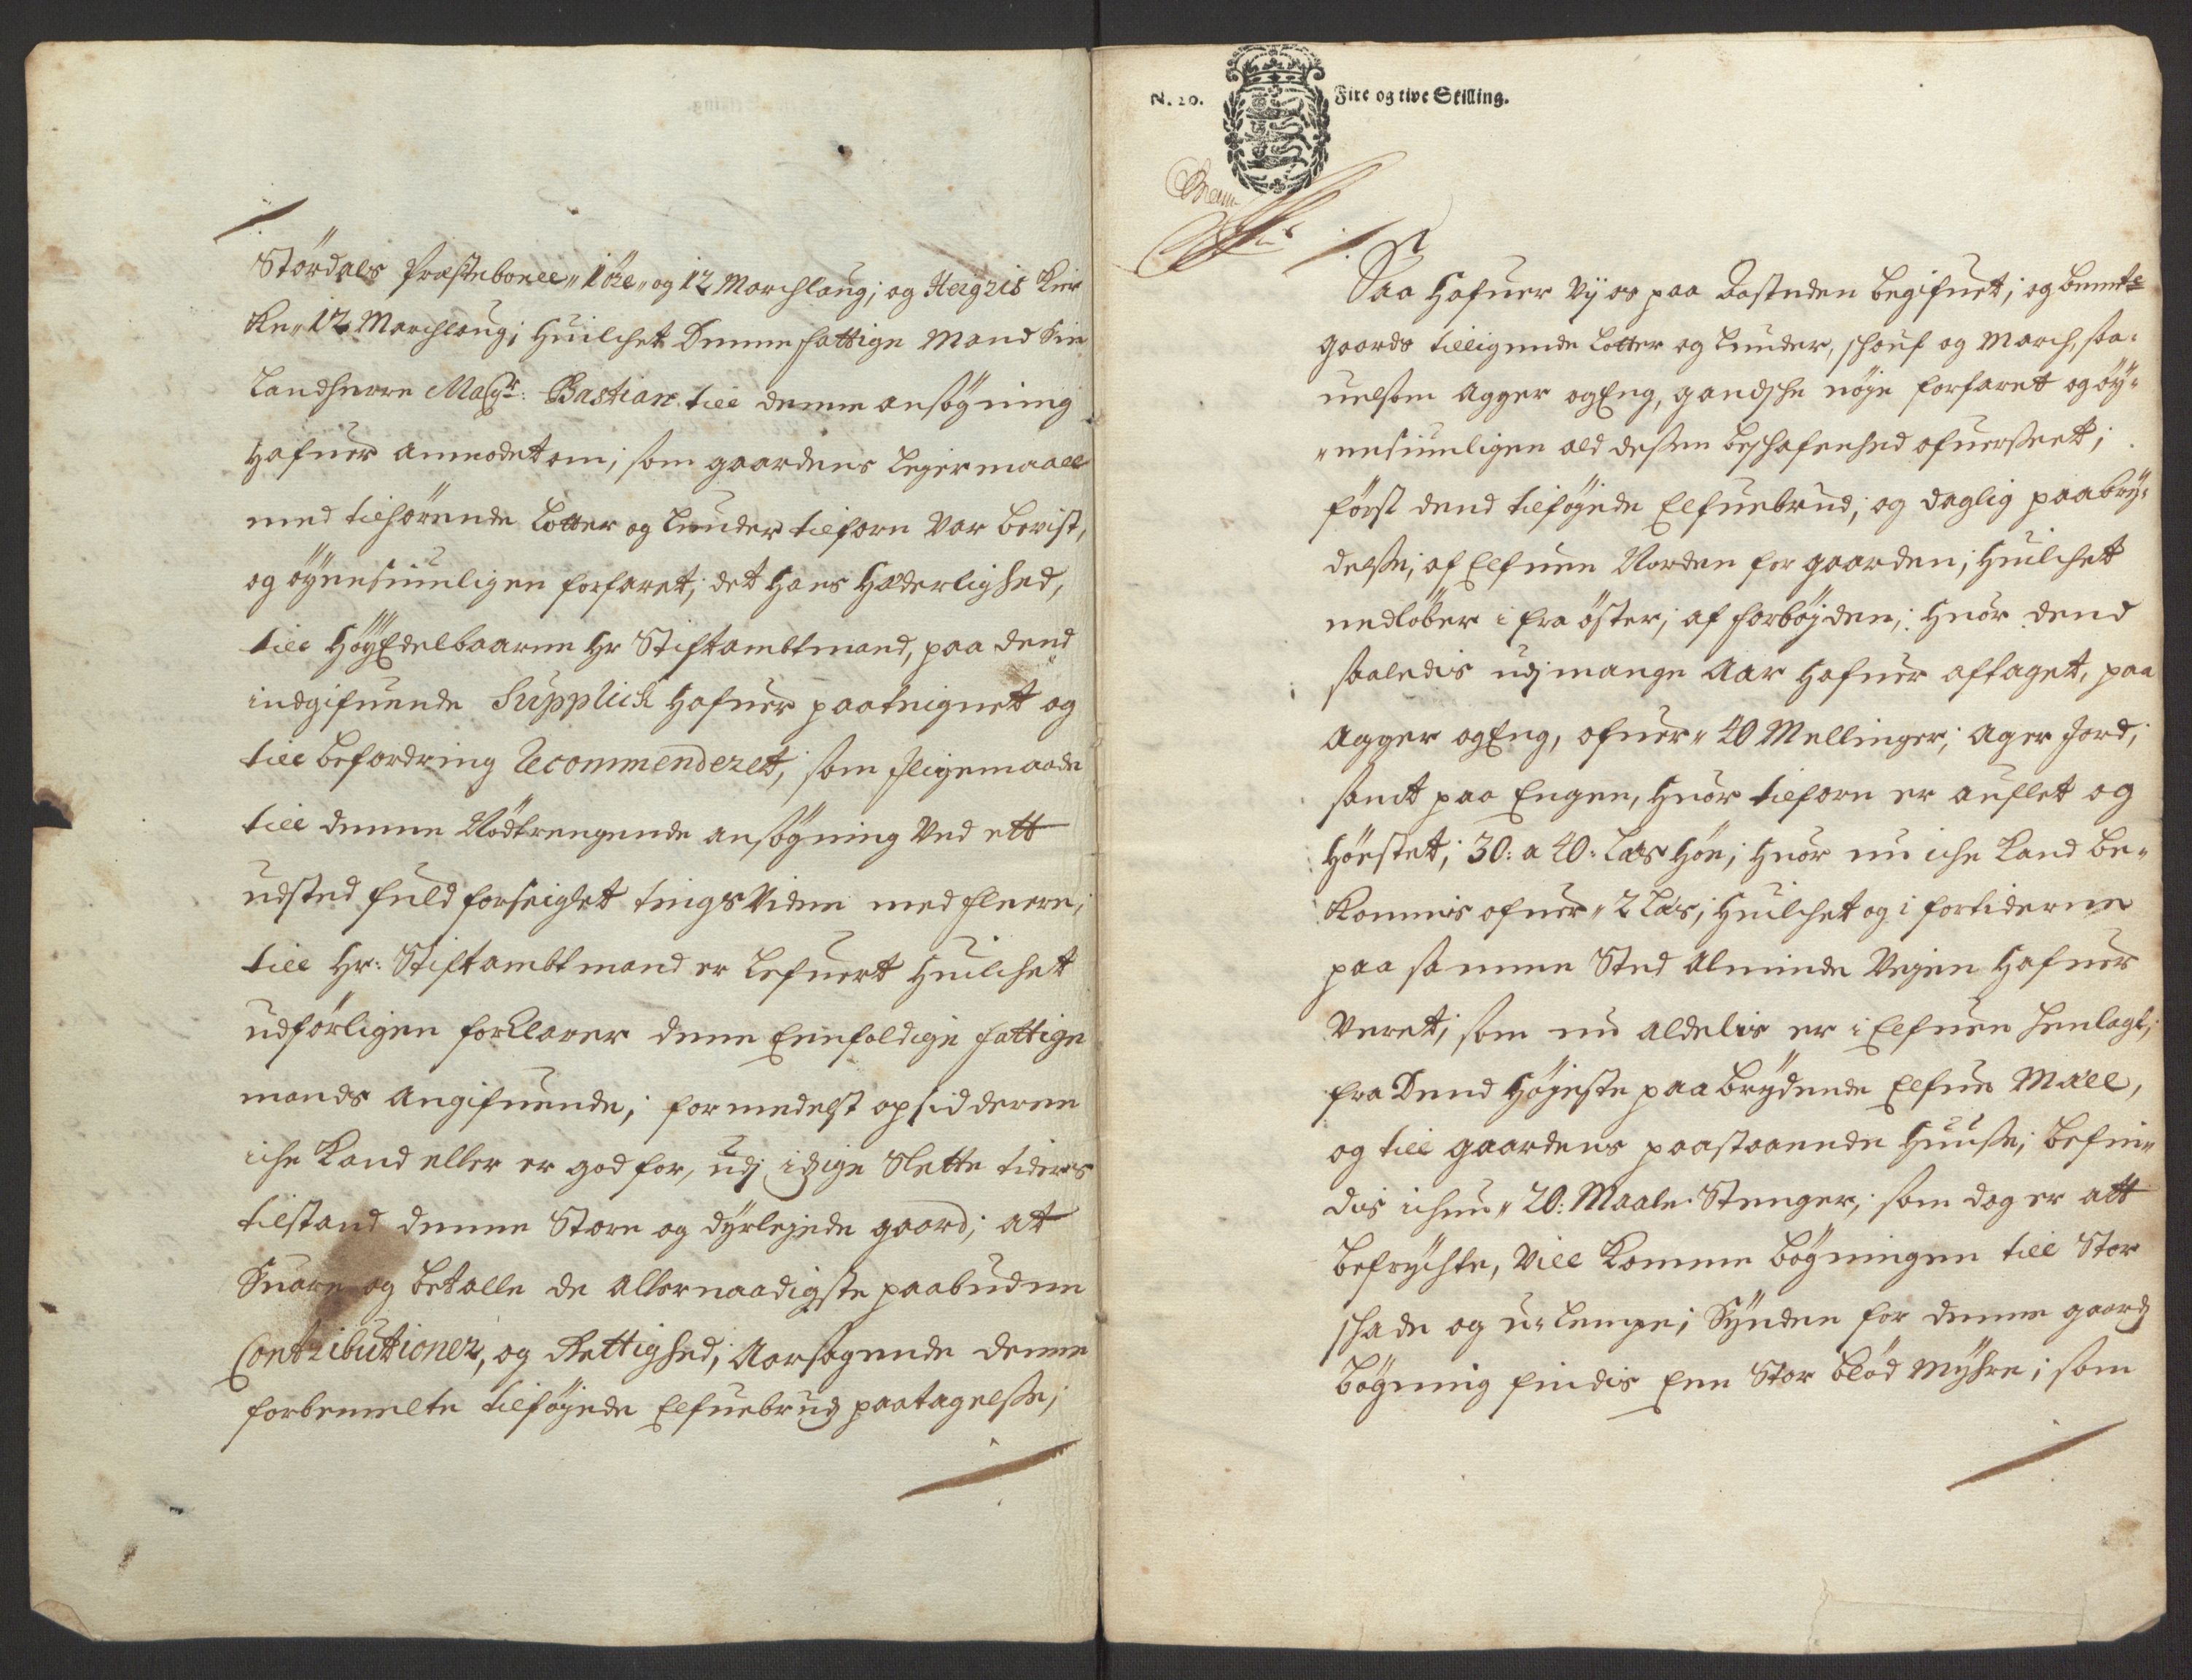 Stördals Præstebonee „1 öre„ og 12 Marchlaug; og Hegris Kier
Ke„ 12 Marchlaug; huilchet Denne fattige Mand Sin
Landherre Magr: Bastian till denne ansögning
hafuer anmodet om; som gaardens Lejermaall
med tilhörende Lotter og Lunder tilforn var bevist,
og öyensiunligen forfaret; det hans Hæderlighed,
till HöyEdelbaarne Hr Stiftambtmand, paa dend
indgifuende Supplick hafuer paateignet og
till befordring Recommenderet; som ligemaade
till denne Nödtrengende ansögning Ved ett
udsted fuld forseiglet tings Vidne med flere;
till Hr: Stiftambtmand er Lefuert huilchet
udförligen forklarer denne Eenfoldige fattige
mands angifuende; formedelst opsidderne
iche Kand eller er god for, udj idzige Slette tiders
tilstand denne Store og dyrlejede gaard; at
Suare og betalle de allernaadigste paabudne
Contributioner, og Rettighed; Aarsagende denne
forbemelte tilföyede Elfuebrud paatagelsse;
N. 20. Fire og tive Skilling.
Saa hafuer Vj os paa Aastæden begifuet; og bemte
gaards tilligende Lotter og Lunder, schouf og March, saa-
uelsom Agger og Eng, gandsche nöje forfaret og öy-
„ensiunligen ald dessen beschafenhed ofuerseet;
först dend tilföyede Elfuebrud; og daglig paabry-
delsse; af Elfuen Norden for gaarden; huilchet
nedlöber i fra öster; af forböyden; huor dend
saaledis udj mange Aar hafuer aftaget, paa
Agger og Eng, ofuer „ 40 Mellinger; Ager Jord;
samt paa Engen, huor tilforn er auflet og
höestet; 30: a 40: Læs höe; huor nu iche Kand be-
kommis ofuer „ 2 Læs; huilchet og i fortiderne
paa samme Sted Alminde Vejen hafuer
Veret; som nu aldelis er i Elfuen henlagt;
fra Dend höjeste paabrydende Elfue Mæll,
og till gaardens paastaaende huusse; befin„
dis ichun „ 20: Maale Stenger; som dog er att
befrychte, Vill Komme bögningen till Stor
schade og u-lempe; Synden for denne gaards
bögning findis Een Stor blöd Myhre; som